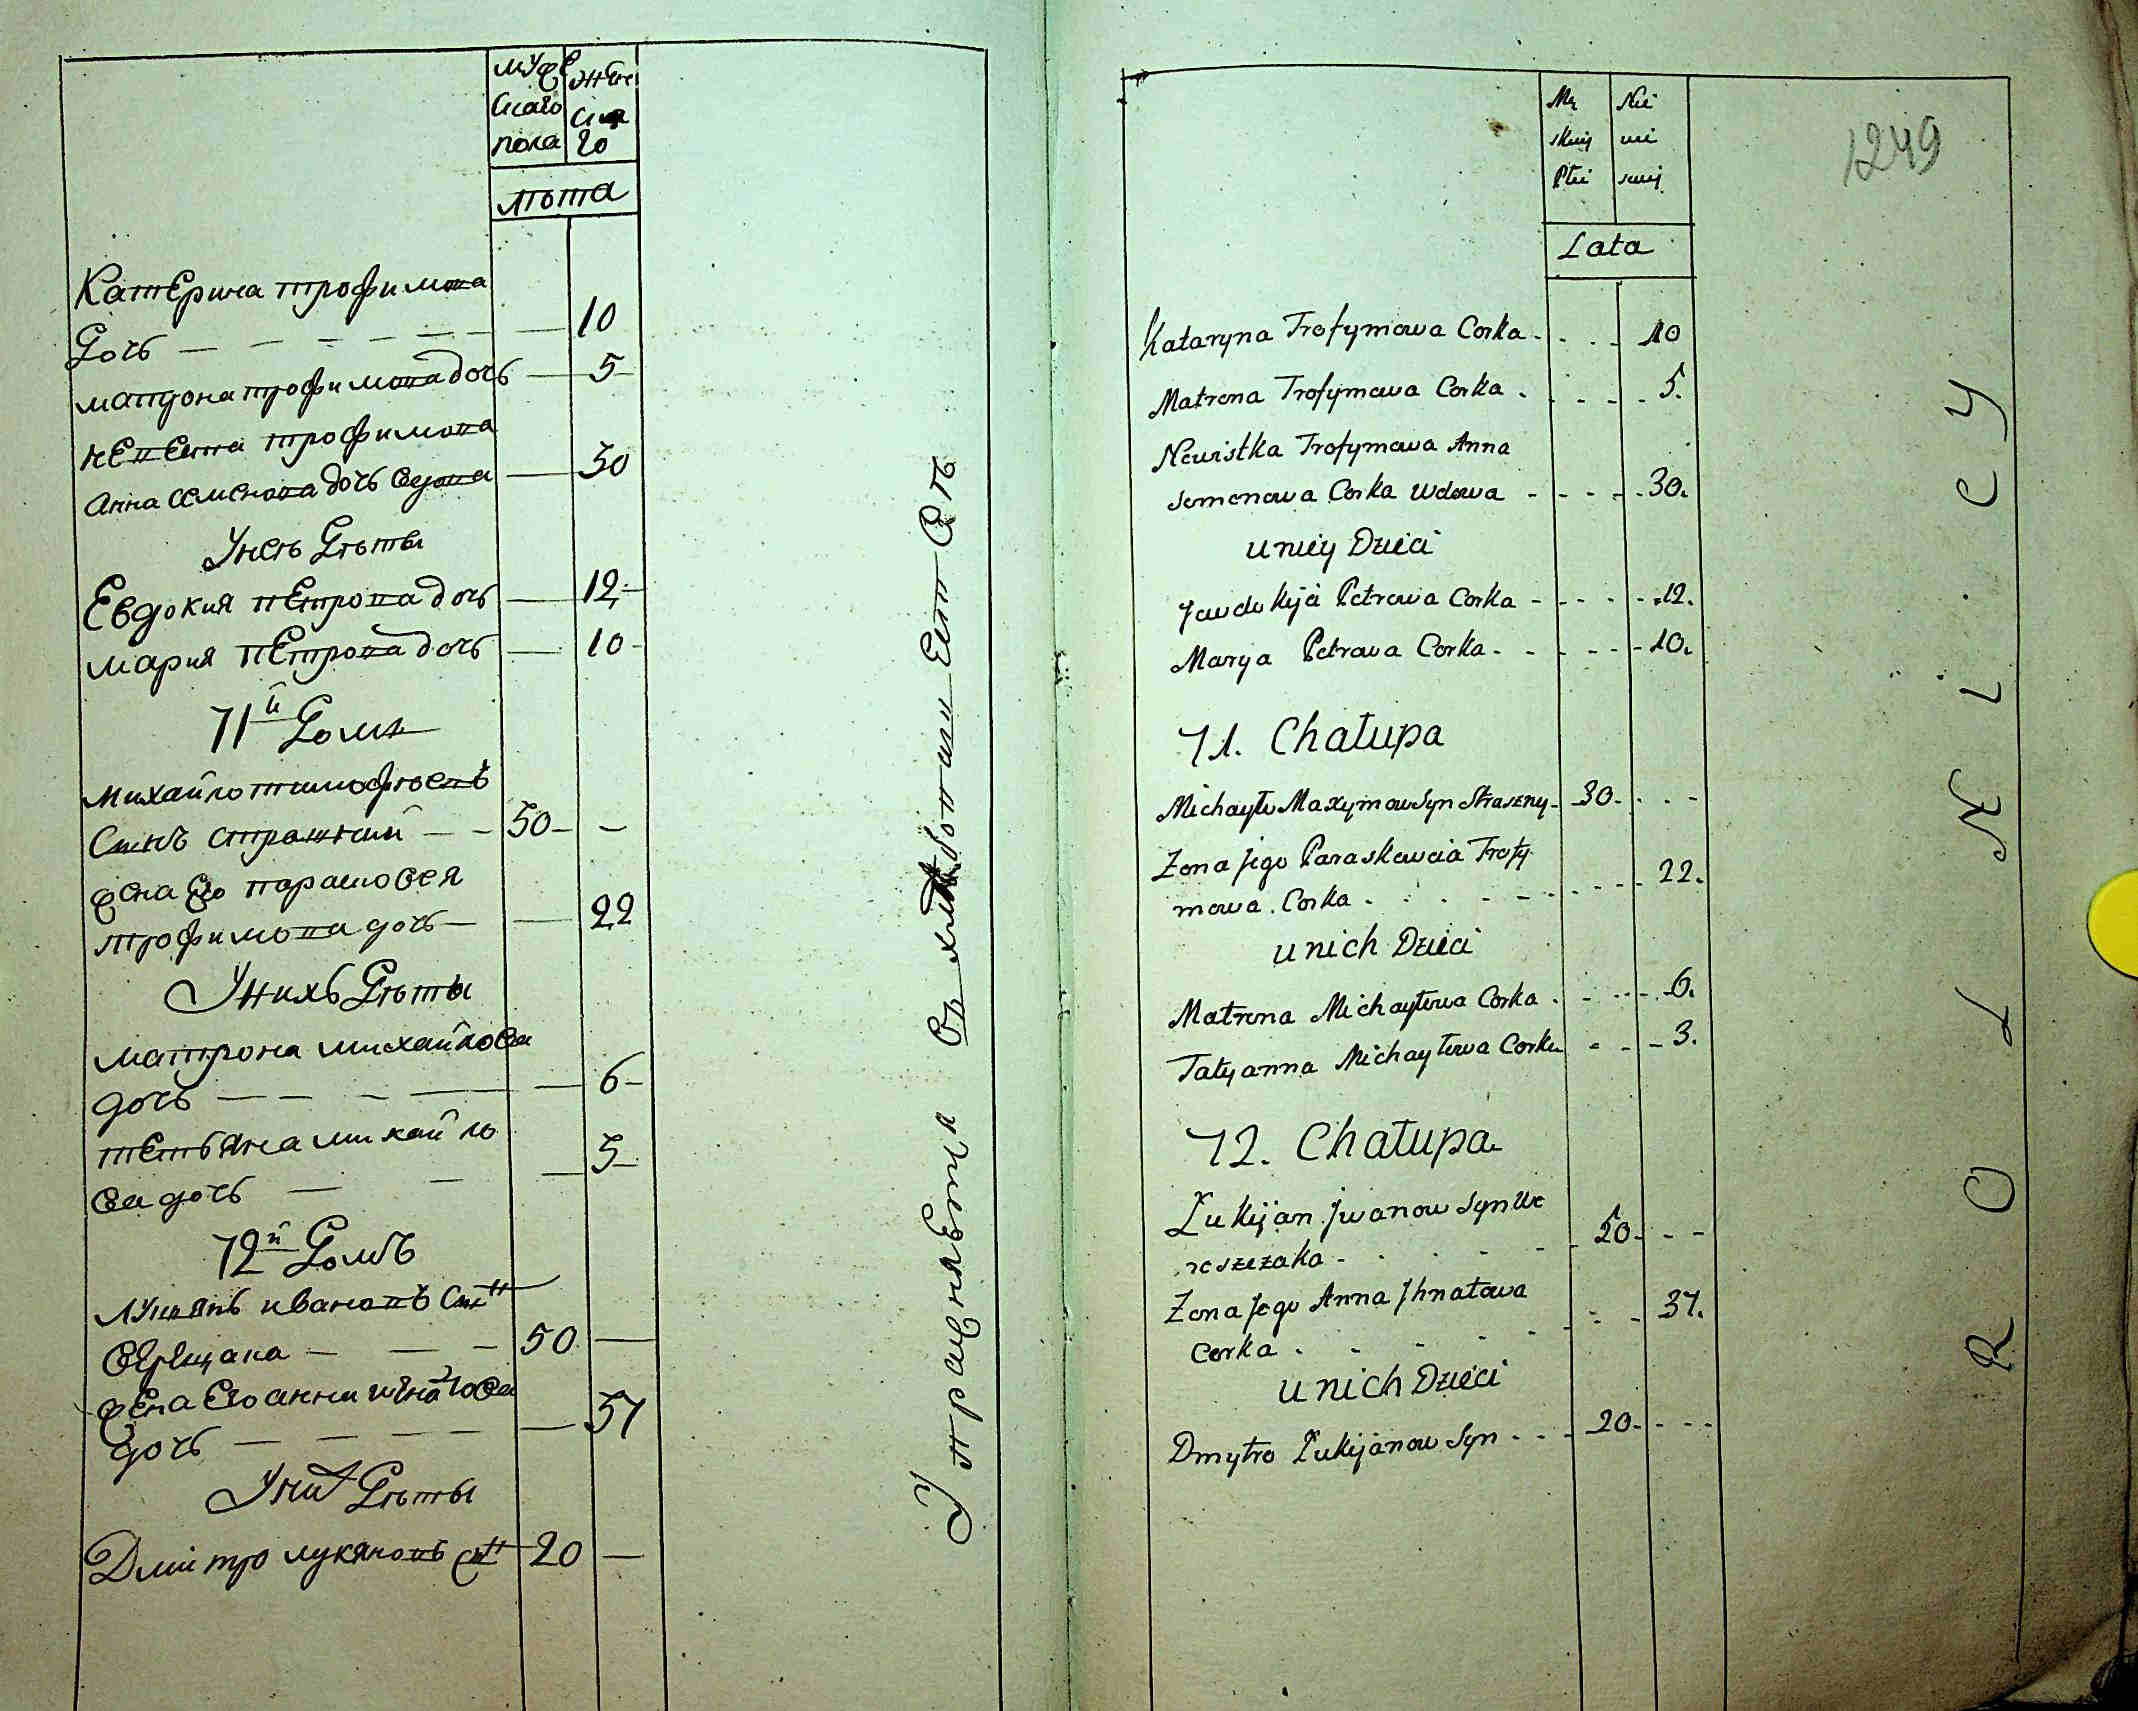 мужескаго пола
женскаго
лѣта
Катерина трофимова
дочь — — — — — — 10
матрона трофимова дочь — 5
невестка трофимова
анна семенова дочь вдова — 30
У неѣ дѣты
Евдокия петрова дочь — 12
мария петрова дочь — 10
71й домъ
михайло тимофѣевъ
сынъ страшний — — 30 — —
жена Его парасковея
трофимова дочь — — 22
У нихъ дѣты
матрона михайлова
дочь — — — — — 6
тетьяна михайло
ва дочь — — — 3
72й домъ
лукянъ ивановъ сынъ
верещака — — — 50 —
жена Его анна игнатова
дочь — — — — — 37
У них дѣты
Дмитро лукяновъ сынъ 20 —
Управляетца
1249
Męskiej Płci
Niewieściej
Lata
Kataryna Trofymowa Corka - . . . 10
Matrona Trofymowa Corka . . - - - 5.
Newistka Trofymowa Anna
Semenowa Corka Wdowa - - - - - 30.
u niey Dzieci
Jewdokija Petrowa Corka - - - - - 12.
Marya Petrowa Corka - - - - - - 10.
71. Chałupa
Michayło Maxymow Syn Straszny - 30 - . . -
Żona jego Paraskewia Trofy
mowa Corka . . . . - - - - - 22.
u nich Dzieci
Matrona Michayłowa Corka . - . . - . 6.
Tatyanna Michayłowa Corka - - - 3.
72. Chałupa
Łukijan Jwanow Syn We
reszczaka - . . . - - 50 - - -
Żona jego Anna Jhnatowa
Corka . - - - - - - 37.
u nich Dzieci
Dmytro Łukijanow Syn . - - 20 - - - -
ROLNICY